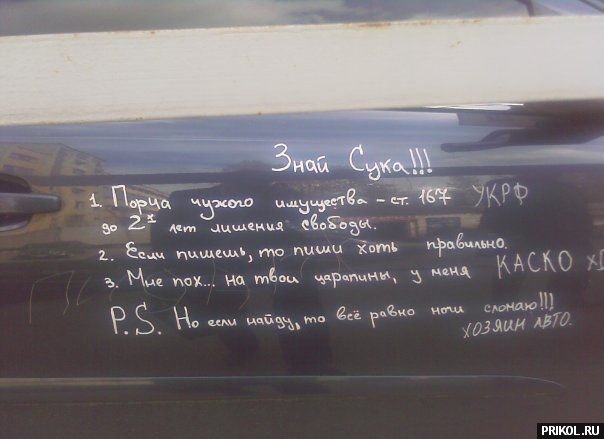 Знай Сука!!!
1. Порча чужого имущества - ст. 167 УКРФ
до 2х лет лишения свободы.
2. Если пишешь, то пиши хоть правильно.
3. Мне пох... на твои царапины, у меня КАСКО xD
P.S. Но если найду, то всё равно ноги сломаю!!!
ХОЗЯИН АВТО.
PRIKOL.RU